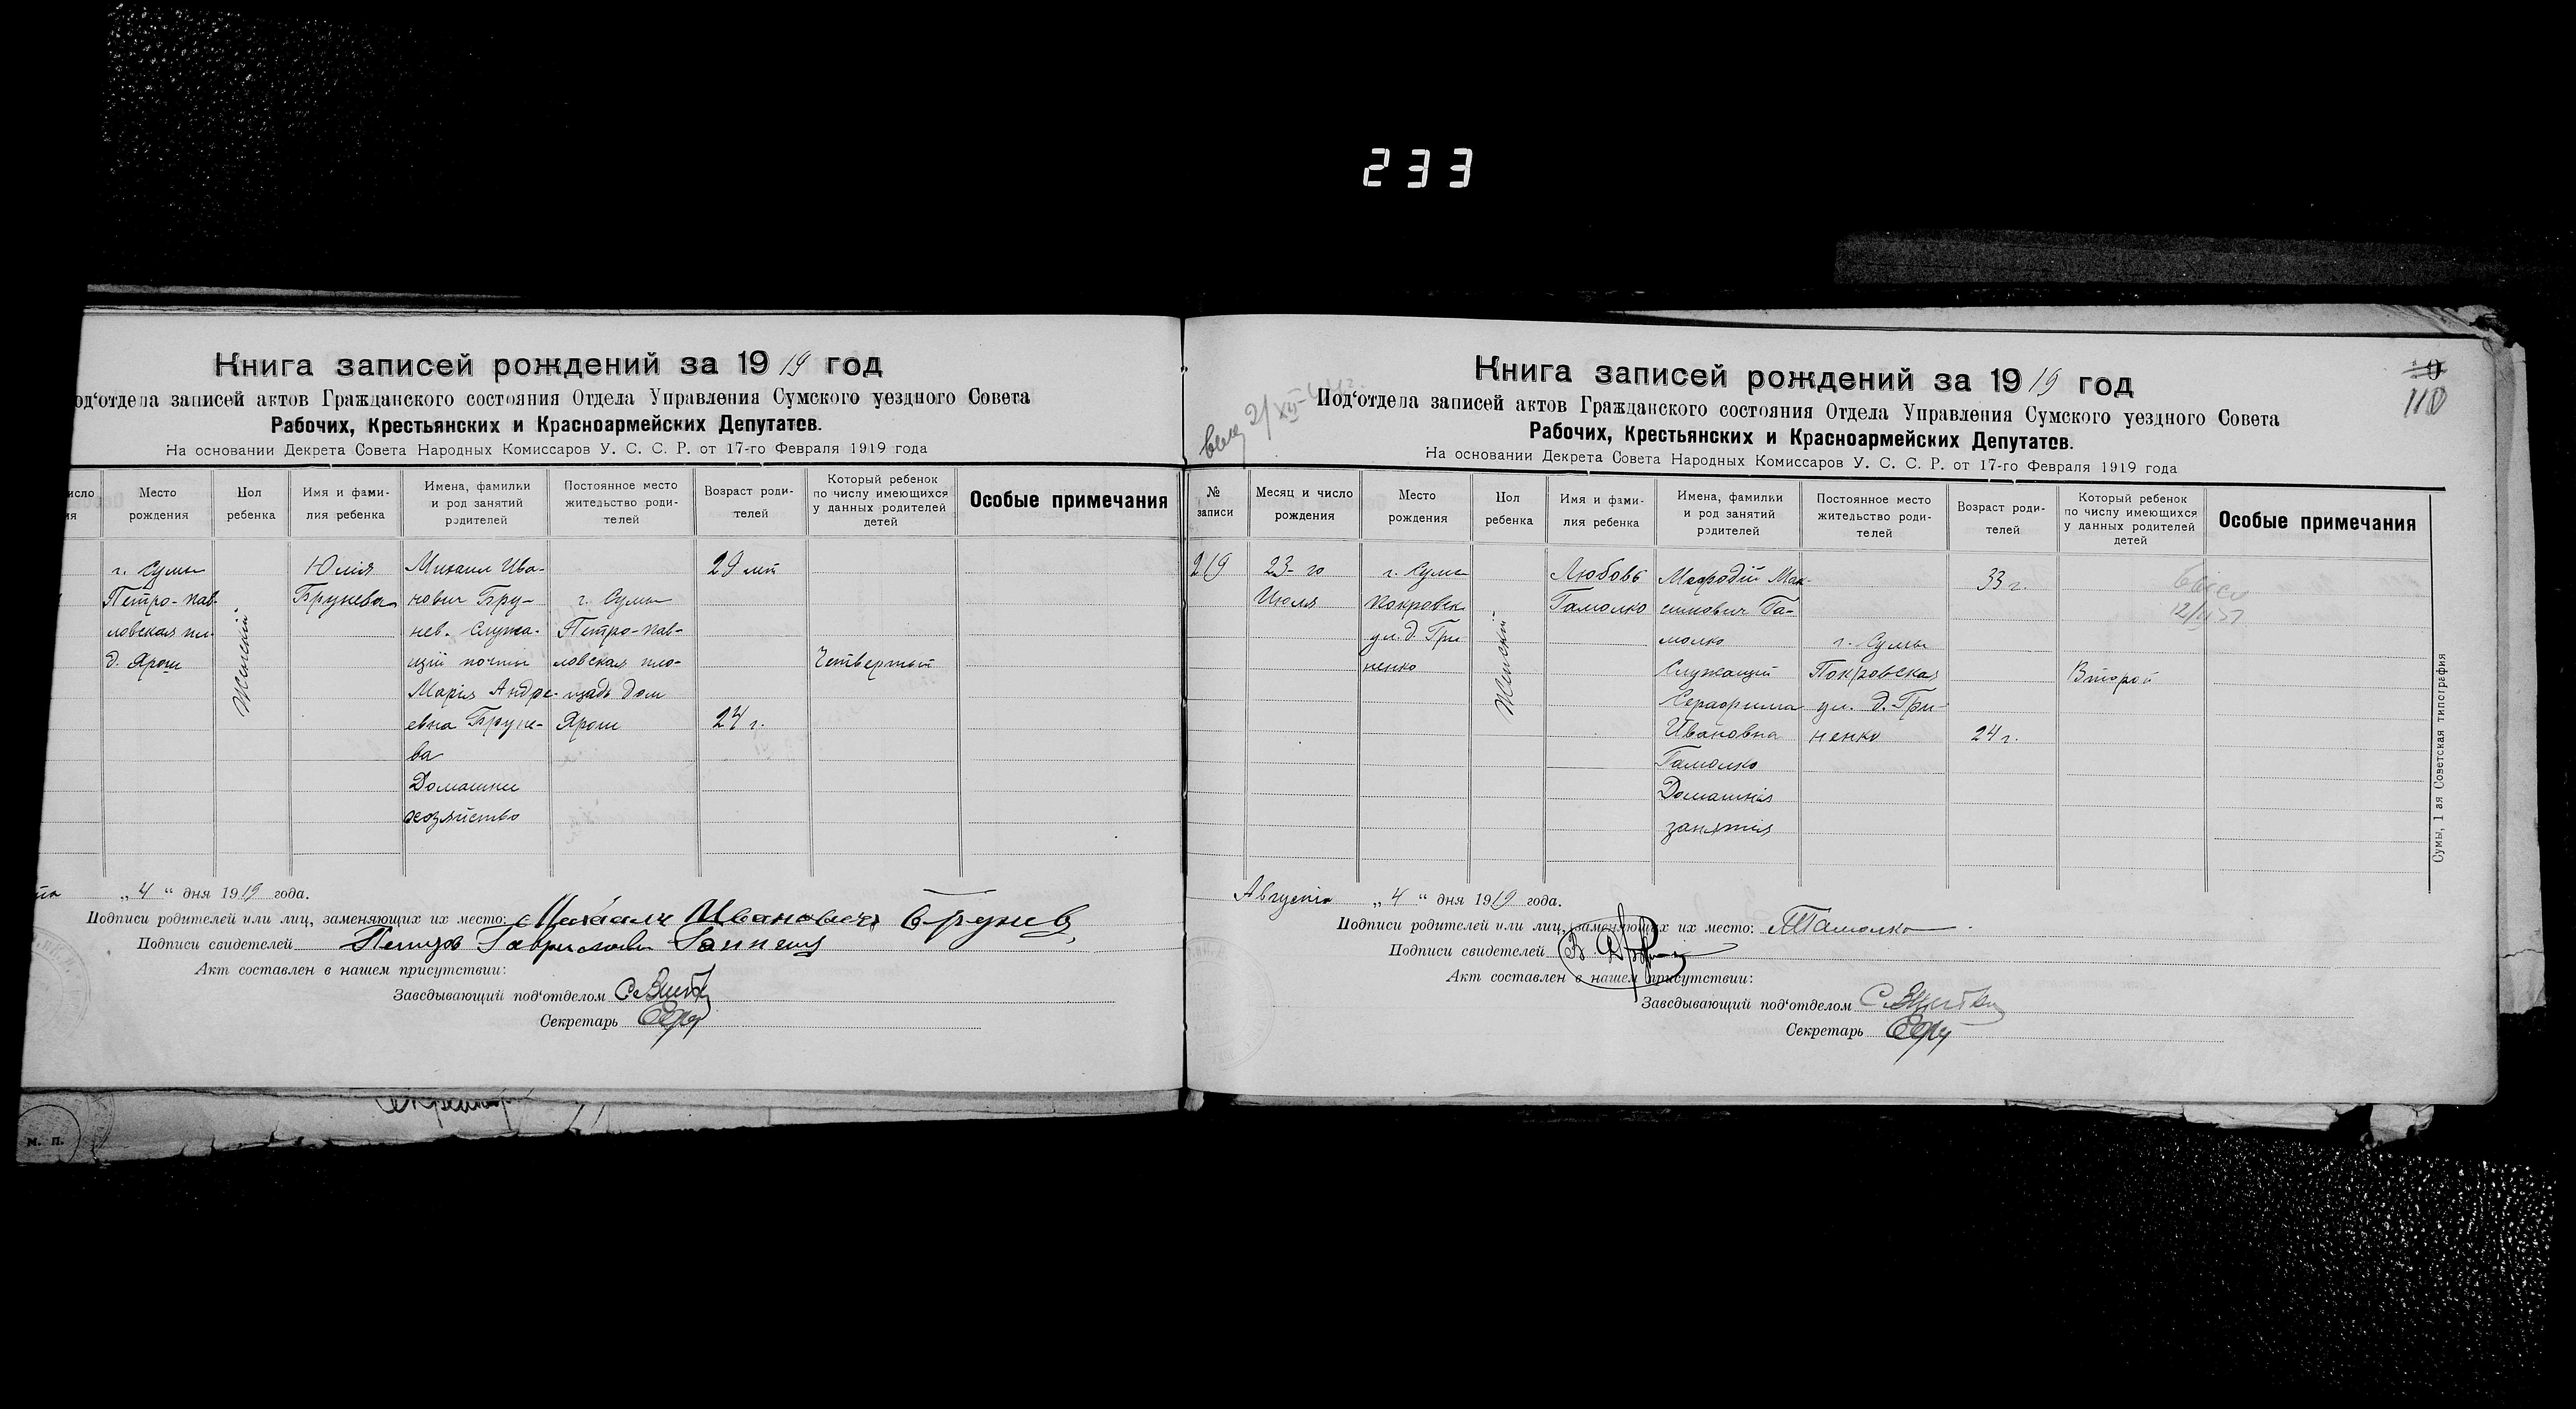 233
Книга записей рождений за 1919 год
од‘отдела записей актов Гражданского состояния Отдела Управления Сумского уездного Совета
Рабочих, Крестьянских и Красноармейских Депутатов.
На основании Декрета Совета Народных Комиссаров У. С. С. Р. от 17-го Февраля 1919 года
исло
ия
Место
рождения
Пол
ребенка
Имя и фами-
лия ребенка
Имена, фамилки
и род занятий
родителей
Постоянное место
жительство роди-
телей
Возраст роди-
телей
Который ребенок
по числу имеющихся
у данных родителей
детей
Особые примечания
г. Сумы
Петро-пав-
ловская пл.
д. Ярош
Женский
Юлія
Брунева
Михаил Ива-
нович Бру-
нев. Служа-
щій почты
Марія Андре-
евна Бруне-
ва
Домашнее
хозяйство
г. Сумы
Петро-пав-
ловская пло-
щадь дом
Ярош
29 лет
24 г.
Четвертый
„4“ дня 1919 года.
Подписи родителей или лиц, заменяющих их место: Михаилъ Ивановичъ Брунев
Подписи свидетелей
Акт составлен в нашем присутствии:
Заведывающий под‘отделом
Секретарь
м. п.
Книга записей рождений за 1919 год
110
Под‘отдела записей актов Гражданского состояния Отдела Управления Сумского уездного Совета
Рабочих, Крестьянских и Красноармейских Депутатов.
На основании Декрета Совета Народных Комиссаров У. С. С. Р. от 17-го Февраля 1919 года
№
записи
Месяц и число
рождения
Место
рождения
Пол
ребенка
Имя и фами-
лия ребенка
Имена, фамилки
и род занятий
родителей
Постоянное место
жительство роди-
телей
Возраст роди-
телей
Который ребенок
по числу имеющихся
у данных родителей
детей
Особые примечания
219
23-го
Июля
г. Сумы
Покровск.
ул. д. Гри
ненко
Женский
Любовь
Гамолко
Мефодій Мак-
симович Га-
молко
Служащий
Серафима
Ивановна
Гамолко
Домашнія
занятія
г. Сумы
Покровская
ул. д. Гри-
ненко
33 г.
24 г.
Второй
Августа „4“ дня 1919 года.
Подписи родителей или лиц, заменяющих их место: МГамолко
Подписи свидетелей
Акт составлен в нашем присутствии:
Заведывающий под‘отделом
Секретарь
Сумы, 1 ая Советская типография